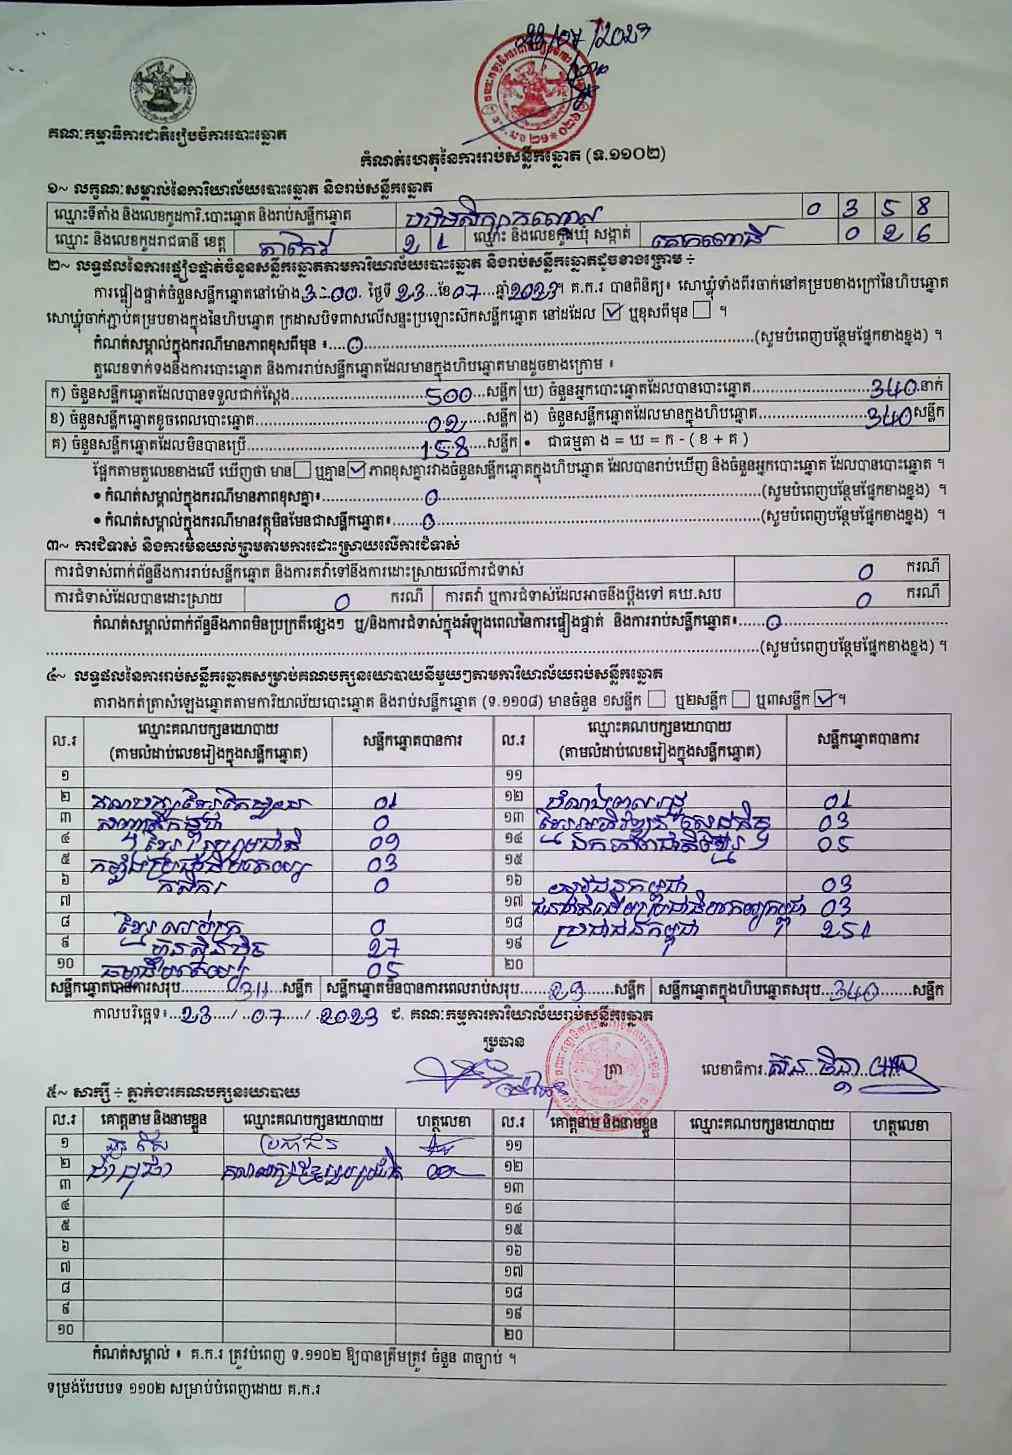 22/07/2023
គណៈកម្មាធិការជាតិរៀបចំការបោះឆ្នោត
កំណត់ហេតុនៃការរាប់សន្លឹកឆ្នោត (ទ.១១០២)
១~ លក្ខណៈសម្គាល់នៃការិយាល័យបោះឆ្នោត និងរាប់សន្លឹកឆ្នោត
ឈ្មោះទីតាំង និងលេខកូដការិ.បោះឆ្នោត និងរាប់សន្លឹកឆ្នោត 0 3 5 8
ឈ្មោះ និងលេខកូដរាជធានី ខេត្ត តាកែវ 2 1 ឈ្មោះ និងលេខកូដឃុំ សង្កាត់ 0 2 6
២~ លទ្ធផលនៃការផ្ទៀងផ្ទាត់ចំនួនសន្លឹកឆ្នោតតាមការិយាល័យបោះឆ្នោត និងរាប់សន្លឹកឆ្នោតដូចខាងក្រោម ÷
ការផ្ទៀងផ្ទាត់ចំនួនសន្លឹកឆ្នោតនៅម៉ោង 3:00 ថ្ងៃទី 23 ខែ 07 ឆ្នាំ 2023។ គ.ក.រ បានពិនិត្យ៖ សោឃ្លុំទាំងពីរចាក់នៅគម្របខាងក្រៅនៃហិបឆ្នោត
សោឃ្លុំចាក់ភ្ជាប់គម្របខាងក្នុងនៃហិបឆ្នោត ក្រដាសបិទពាសលើសន្ទះប្រឡោះស៊កសន្លឹកឆ្នោត នៅដដែល ☑ ឬខុសពីមុន ☐ ។
កំណត់សម្គាល់ក្នុងករណីមានភាពខុសពីមុន ៖.... 0 ....(សូមបំពេញបន្ថែមផ្នែកខាងខ្នង) ។
តួលេខទាក់ទងនឹងការបោះឆ្នោត និងការរាប់សន្លឹកឆ្នោតដែលមានក្នុងហិបឆ្នោតមានដូចខាងក្រោម ៖
ក) ចំនួនសន្លឹកឆ្នោតដែលបានទទួលជាក់ស្តែង.... 500 ....សន្លឹក ឃ) ចំនួនអ្នកបោះឆ្នោតដែលបានបោះឆ្នោត.... 340 .នាក់
ខ) ចំនួនសន្លឹកឆ្នោតខូចពេលបោះឆ្នោត.... 02 ....សន្លឹក ង) ចំនួនសន្លឹកឆ្នោតដែលមានក្នុងហិបឆ្នោត.... 340 សន្លឹក
គ) ចំនួនសន្លឹកឆ្នោតដែលមិនបានប្រើ.... 158 ....សន្លឹក • ជាធម្មតា ង = ឃ = ក - ( ខ + គ )
ផ្អែកតាមតួលេខខាងលើ ឃើញថា មាន ☐ ឬគ្មាន ☑ ភាពខុសគ្នារវាងចំនួនសន្លឹកឆ្នោតក្នុងហិបឆ្នោត ដែលបានរាប់ឃើញ និងចំនួនអ្នកបោះឆ្នោត ដែលបានបោះឆ្នោត ។
• កំណត់សម្គាល់ក្នុងករណីមានភាពខុសគ្នា៖.... 0 ....(សូមបំពេញបន្ថែមផ្នែកខាងខ្នង) ។
• កំណត់សម្គាល់ក្នុងករណីមានវត្ថុមិនមែនជាសន្លឹកឆ្នោត៖.... 0 ....(សូមបំពេញបន្ថែមផ្នែកខាងខ្នង) ។
៣~ ការជំទាស់ និងការមិនយល់ព្រមតាមការដោះស្រាយលើការជំទាស់
ការជំទាស់ពាក់ព័ន្ធនឹងការរាប់សន្លឹកឆ្នោត និងការតវ៉ាទៅនឹងការដោះស្រាយលើការជំទាស់ 0 ករណី
ការជំទាស់ដែលបានដោះស្រាយ 0 ករណី ការតវ៉ា ឬការជំទាស់ដែលអាចនឹងប្តឹងទៅ គឃ.សប 0 ករណី
កំណត់សម្គាល់ពាក់ព័ន្ធនឹងភាពមិនប្រក្រតីផ្សេងៗ ឬ/និងការជំទាស់ក្នុងអំឡុងពេលនៃការផ្ទៀងផ្ទាត់ និងការរាប់សន្លឹកឆ្នោត៖.... 0 ....
....(សូមបំពេញបន្ថែមផ្នែកខាងខ្នង) ។
៤~ លទ្ធផលនៃការរាប់សន្លឹកឆ្នោតសម្រាប់គណបក្សនយោបាយនីមួយៗតាមការិយាល័យរាប់សន្លឹកឆ្នោត
តារាងកត់ត្រាសំឡេងឆ្នោតតាមការិយាល័យបោះឆ្នោត និងរាប់សន្លឹកឆ្នោត (ទ.១១០៨) មានចំនួន ១សន្លឹក ☐ ឬ២សន្លឹក ☐ ឬ៣សន្លឹក ☑ ។
ល.រ ឈ្មោះគណបក្សនយោបាយ (តាមលំដាប់លេខរៀងក្នុងសន្លឹកឆ្នោត) សន្លឹកឆ្នោតបានការ ល.រ ឈ្មោះគណបក្សនយោបាយ (តាមលំដាប់លេខរៀងក្នុងសន្លឹកឆ្នោត) សន្លឹកឆ្នោតបានការ
១ ១១
២ 01 ១២ 01
៣ 0 ១៣ ខ្មែរអភិវឌ្ឍន៍សេដ្ឋកិច្ច 03
៤ ខ្មែររួបរួមជាតិ 09 ១៤ 05
៥ កម្លាំងប្រជាធិបតេយ្យ 03 ១៥
៦ កសិករ 0 ១៦ យុវជនកម្ពុជា 03
៧ ១៧ ជនជាតិដើមប្រជាធិបតេយ្យកម្ពុជា 03
៨ 0 ១៨ ប្រជាជនកម្ពុជា 251
៩ ហ្វ៊ុនស៊ិនប៉ិច 27 ១៩
១០ ធម្មាធិបតេយ្យ 05 ២០
សន្លឹកឆ្នោតបានការសរុប.... 0311 ....សន្លឹក សន្លឹកឆ្នោតមិនបានការពេលរាប់សរុប.... 29 ....សន្លឹក សន្លឹកឆ្នោតក្នុងហិបឆ្នោតសរុប.... 340 ....សន្លឹក
កាលបរិច្ឆេទ៖... 23 .../... 07 .../... 2023 ជ. គណៈកម្មការការិយាល័យរាប់សន្លឹកឆ្នោត
ប្រធាន
ត្រា លេខាធិការ.
៥~ សាក្សី ÷ ភ្នាក់ងារគណបក្សនយោបាយ
ល.រ គោត្តនាម និងនាមខ្លួន ឈ្មោះគណបក្សនយោបាយ ហត្ថលេខា ល.រ គោត្តនាម និងនាមខ្លួន ឈ្មោះគណបក្សនយោបាយ ហត្ថលេខា
១ ប្រជាជន ១១
២ ១២
៣ ១៣
៤ ១៤
៥ ១៥
៦ ១៦
៧ ១៧
៨ ១៨
៩ ១៩
១០ ២០
កំណត់សម្គាល់ ៖ គ.ក.រ ត្រូវបំពេញ ទ.១១០២ ឱ្យបានត្រឹមត្រូវ ចំនួន ៣ច្បាប់ ។
ទម្រង់បែបបទ ១១០២ សម្រាប់បំពេញដោយ គ.ក.រ